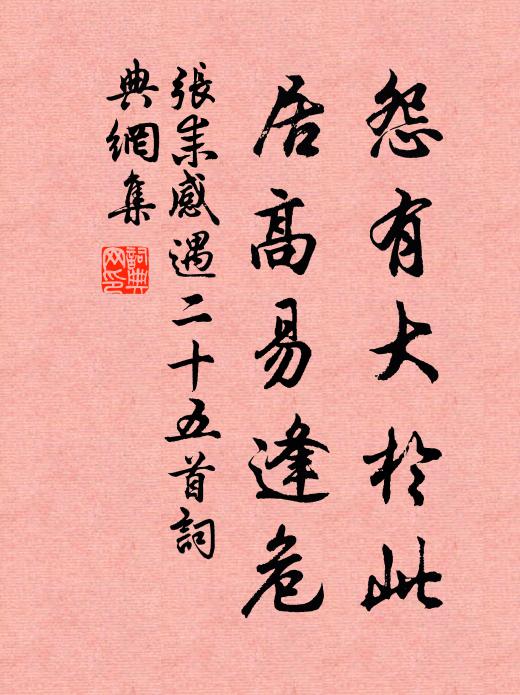 怨有大於此
居高易逢危
張耒感遇二十五首詞
典網集
詞典網印